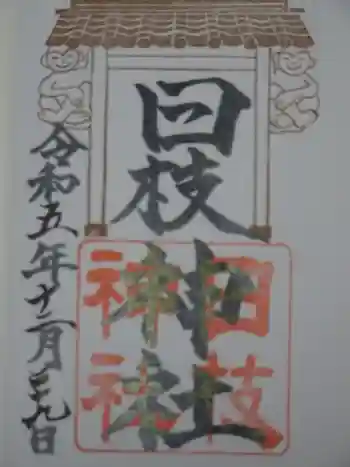 日枝神社
令和五年十二月二十九日
日枝
神社